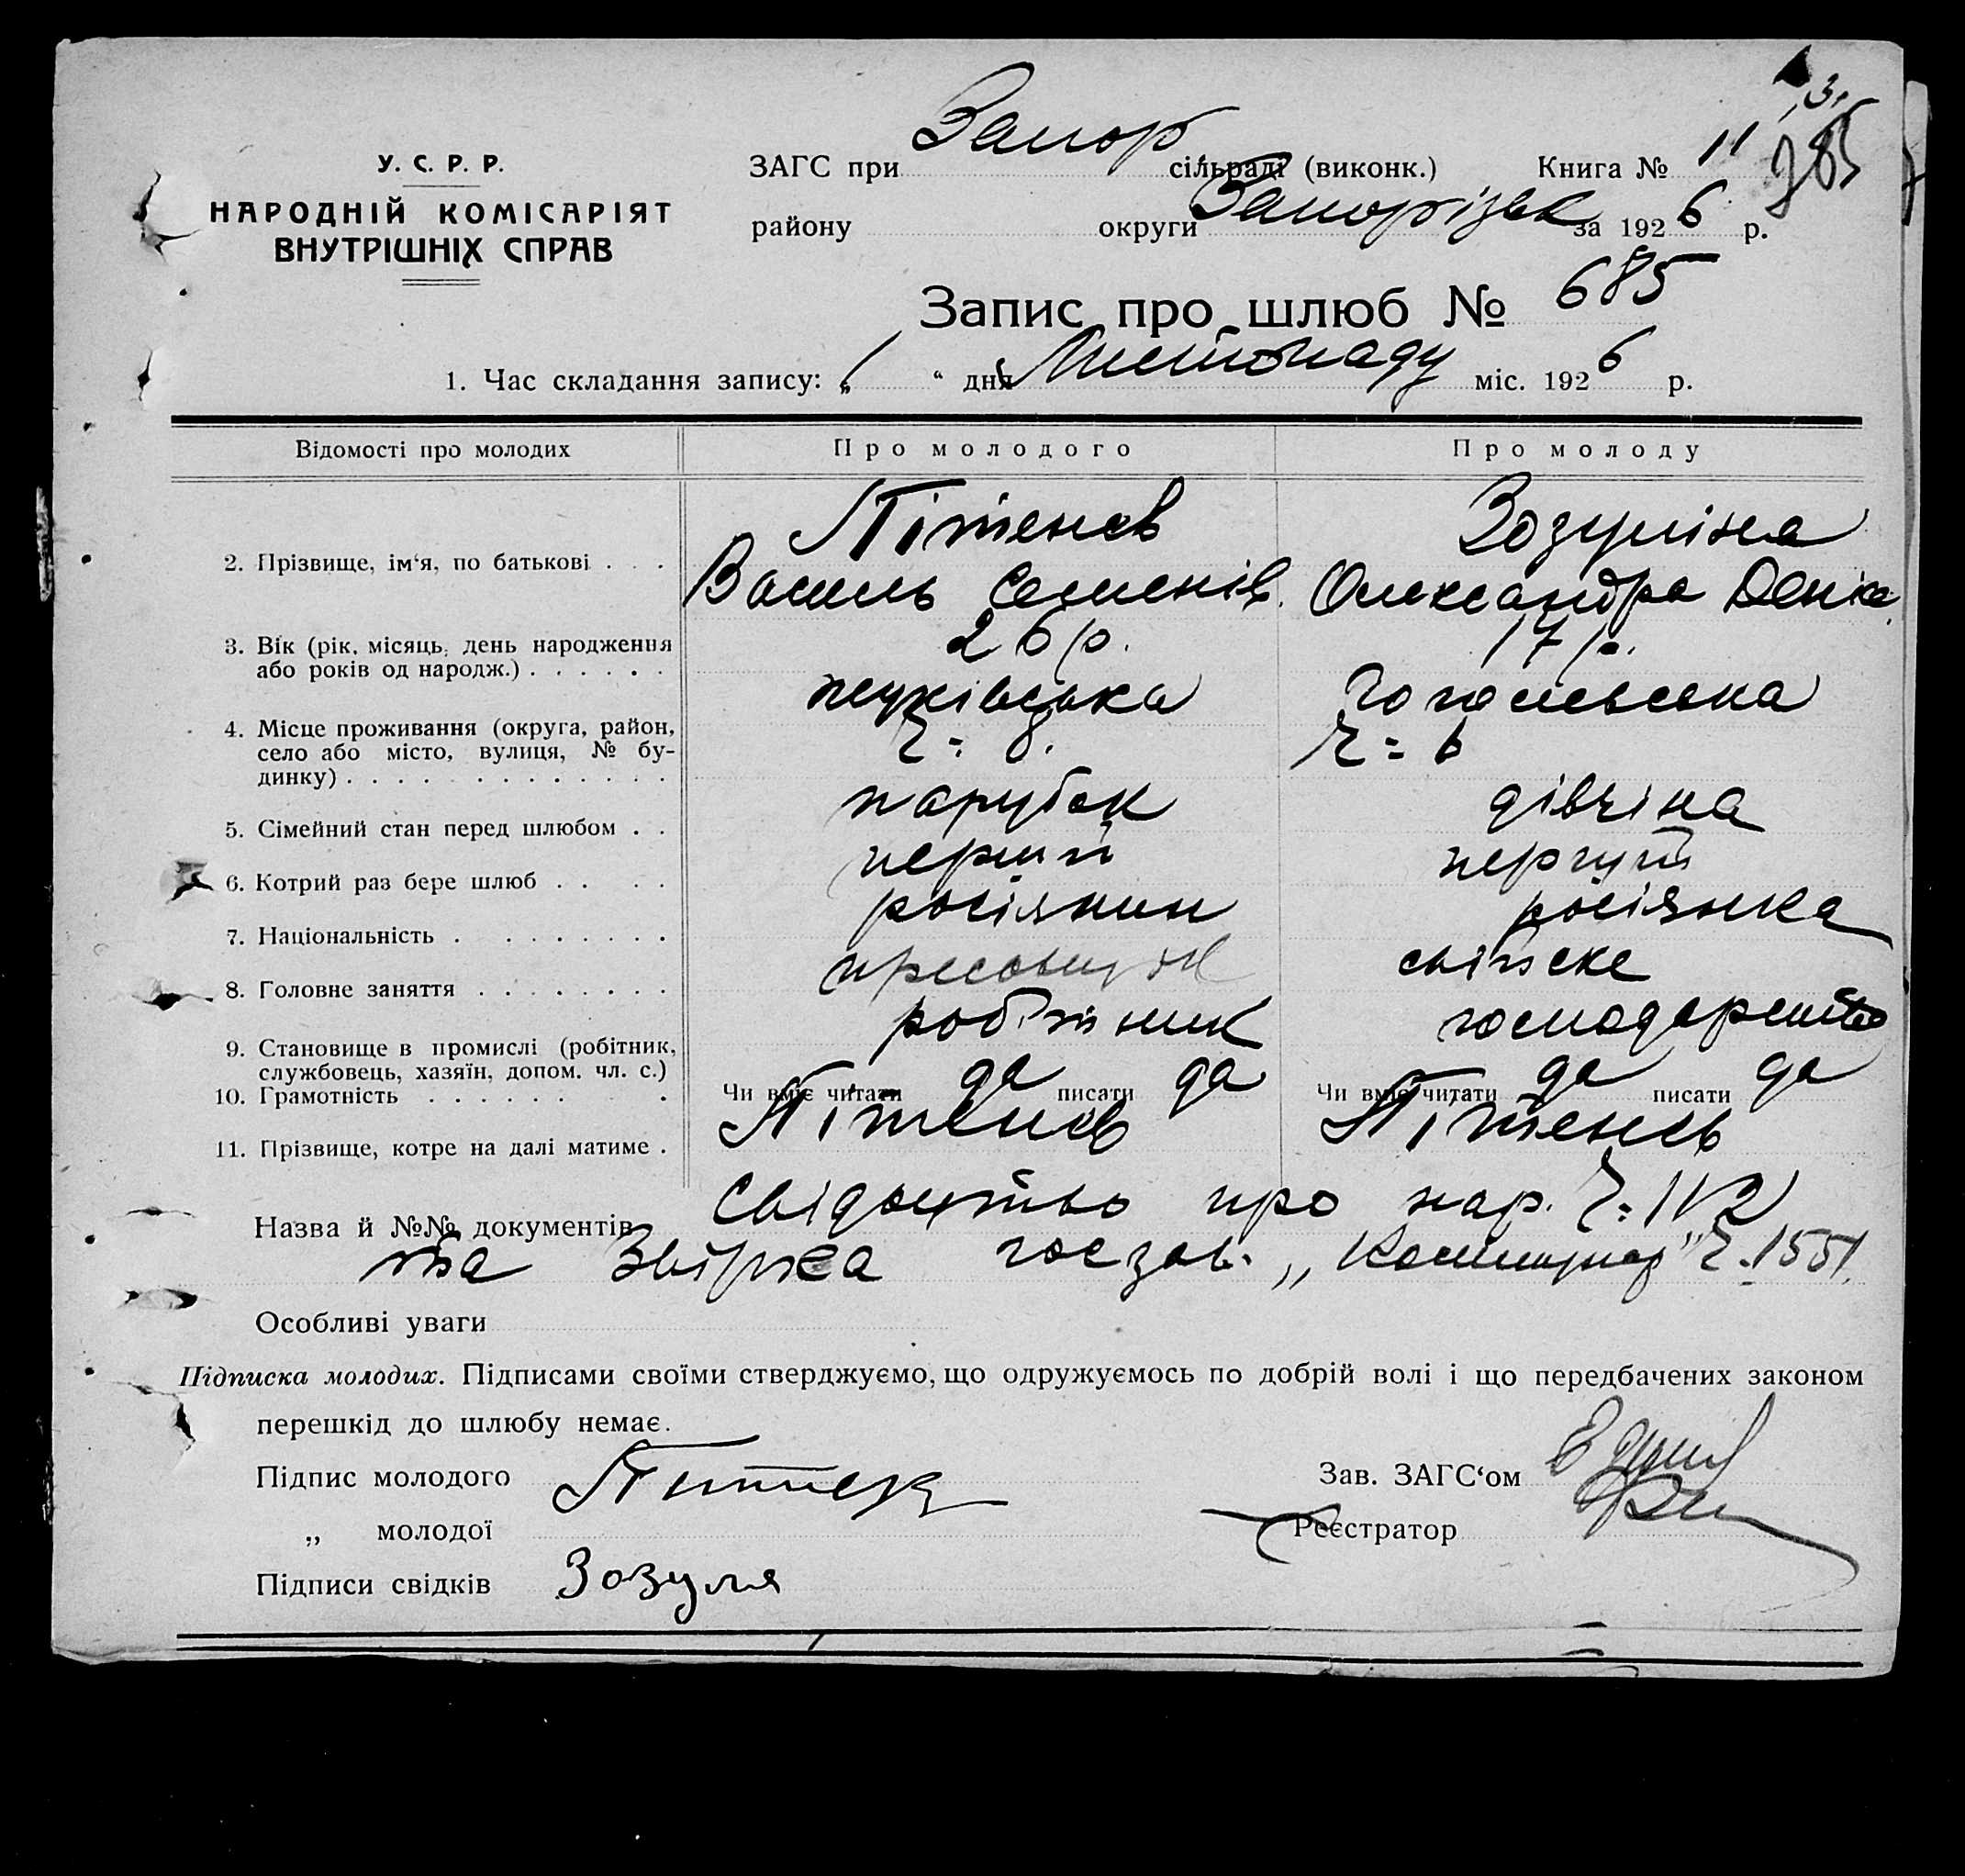 З.
У. С. Р. Р.
НАРОДНІЙ КОМІСАРІЯТ
ВНУТРІШНІХ СПРАВ
ЗАГС при Запор сільраді (виконк.) Книга № 11
району округи Запорізьк за 1926 р.
Запис про шлюб № 685
1. Час складання запису: „1“ дня Листопаду міс. 1926 р.
Відомості про молодих Про молодого Про молоду
Пітенєв Зозуліна
2. Прізвище, ім‘я, по батькові . . . Василь Семенів. Олександра Деніс.
3. Вік (рік, місяць, день народження 26 р. 17 р.
або років од народж.) . . . . . .
4. Місце проживання (округа, район, Гоголевська
село або місто, вулиця, № бу- Ч= 8. Ч= 6
динку) . . . . . . . . . . . . .
5. Сімейний стан перед шлюбом . . парубок дівчіна
6. Котрий раз бере шлюб . . . . перший перший
7. Національність . . . . . . . . росіянин росіянка
8. Головне заняття . . . . . . . . свійске
9. Становище в промислі (робітник, робітник господарство
службовець, хазяїн, допом. чл. с.)
10. Грамотність . . . . . . . Чи вміє читати да писати да Чи вміє читати да писати да
11. Прізвище, котре на далі матиме . Пітенєв Пітенєв
Назва й №№ документів Свідоцтво про нар. Ч=112
та Звірка госзав. „Коммунар” Ч.1551.
Особливі уваги
Підписка молодих. Підписами своїми стверджуємо, що одружуємось по добрій волі і що передбачених законом
перешкід до шлюбу немає.
Підпис молодого Зав. ЗАГС‘ом
„ молодої Реєстратор
Підписи свідків Зозуля